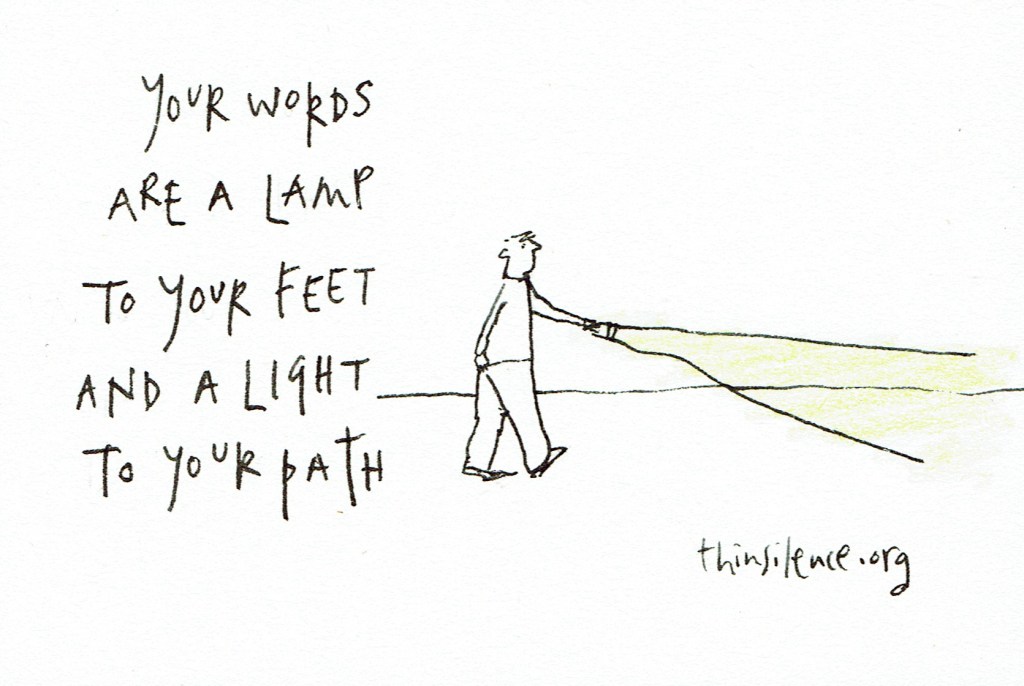 YOUR WORDS
ARE A LAMP
TO YOUR FEET
AND A LIGHT
TO YOUR PATH
thinsilence.org